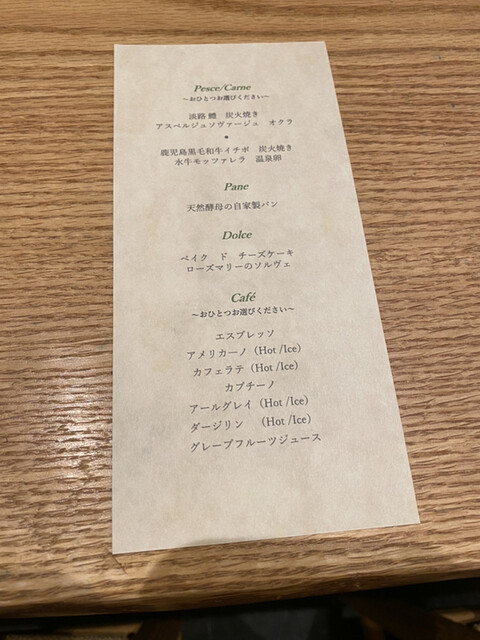 Pesce/Carne
～おひとつお選びください～
淡路 鱧　炭火焼き
アスペルジュソヴァージュ　オクラ
*
鹿児島黒毛和牛イチボ　炭火焼き
水牛モッツァレラ　温泉卵
Pane
天然酵母の自家製パン
Dolce
ベイク　ド　チーズケーキ
ローズマリーのソルヴェ
Café
～おひとつお選びください～
エスプレッソ
アメリカーノ（Hot /Ice）
カフェラテ（Hot /Ice）
カプチーノ
アールグレイ（Hot /Ice）
ダージリン　（Hot /Ice）
グレープフルーツジュース